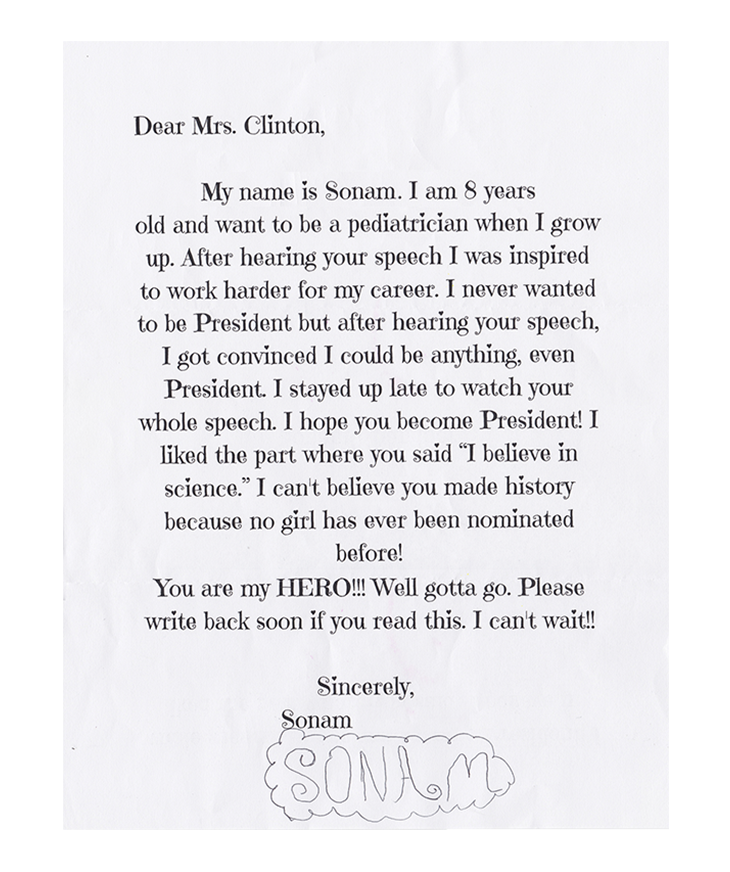 Dear Mrs. Clinton,
My name is Sonam. I am 8 years
old and want to be a pediatrician when I grow
up. After hearing your speech I was inspired
to work harder for my career. I never wanted
to be President but after hearing your speech,
I got convinced I could be anything, even
President. I stayed up late to watch your
whole speech. I hope you become President! I
liked the part where you said “I believe in
science.” I can't believe you made history
because no girl has ever been nominated
before!
You are my HERO!!! Well gotta go. Please
write back soon if you read this. I can't wait!!
Sincerely,
Sonam
SONAM